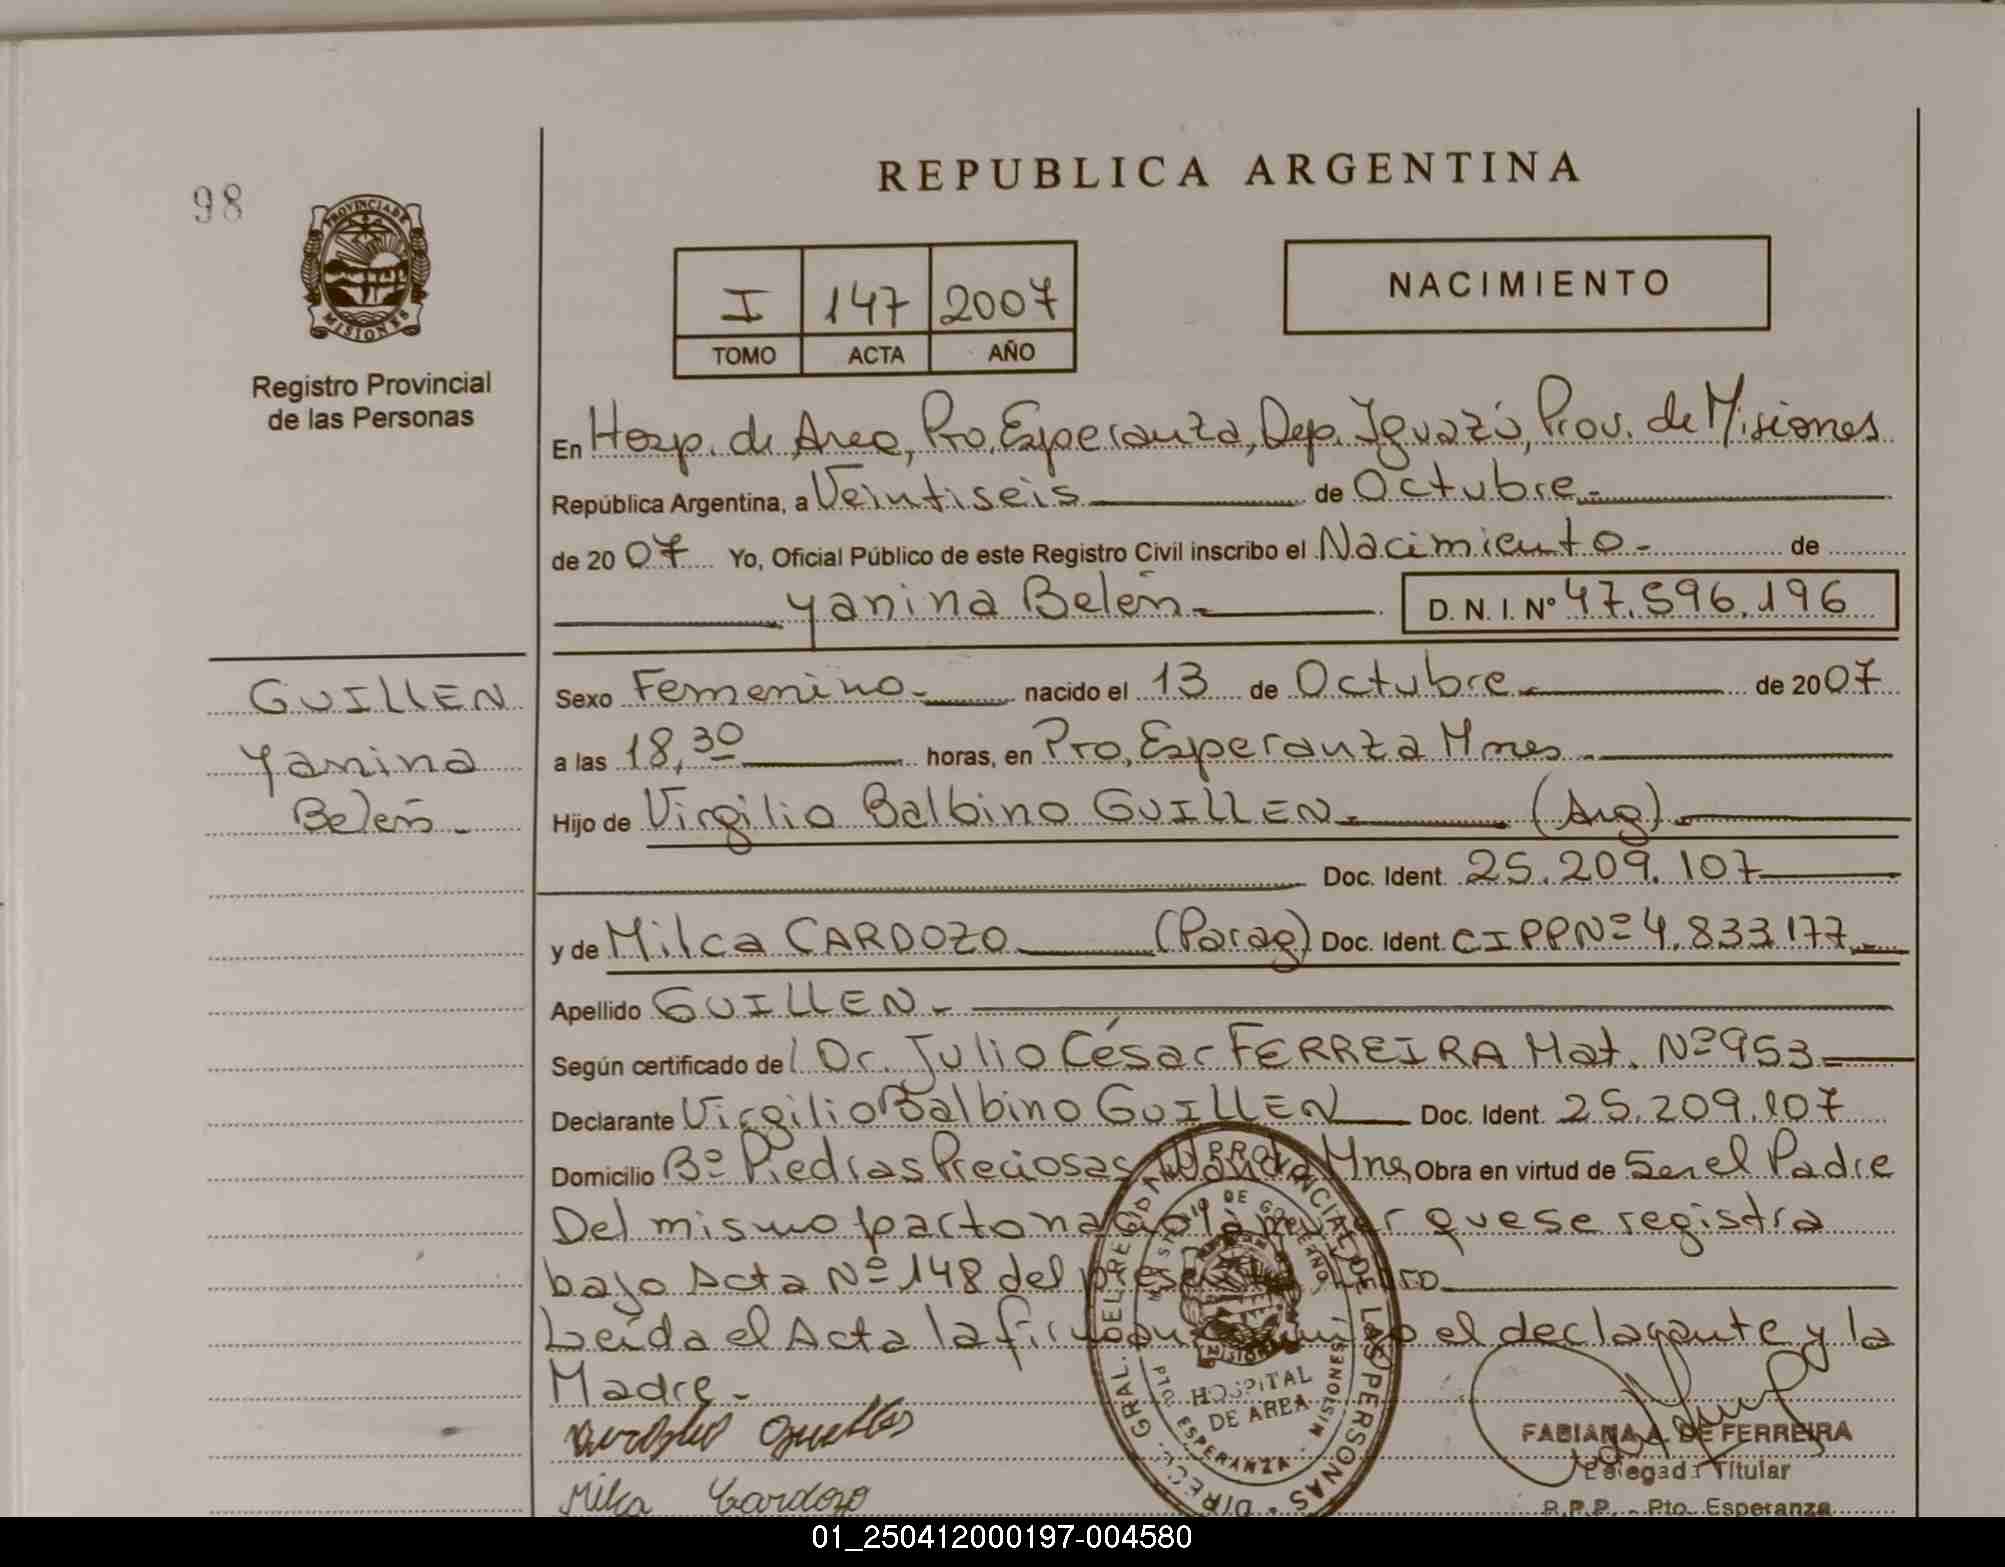 98
REPUBLICA ARGENTINA
PROVINCIA DE
MISIONES
Registro Provincial
de las Personas
I 147 2007
TOMO ACTA AÑO
NACIMIENTO
En Hosp. de Area, Pto. Esperanza, Dep. Iguazú, Prov. de Misiones
República Argentina, a Veintiseis de Octubre.-
de 20 07 Yo, Oficial Público de este Registro Civil inscribo el Nacimiento.- de
Yanina Belén.- D. N. I. Nº 47.596.196
GUILLEN
Yanina
Belén.-
Sexo Femenino.- nacido el 13 de Octubre.- de 20 07
a las 18,30 horas, en Pto. Esperanza Mnes.-
Hijo de Virgilio Balbino GUILLEN.- (Arg).-
Doc. Ident. 25.209.107
y de Milca CARDOZO (Parag) Doc. Ident. CIPPNº 4.833177.-
Apellido GUILLEN.-
Según certificado de Dr. Julio César FERREIRA Mat. Nº 953
Declarante Virgilio Balbino GUILLEN Doc. Ident. 25.209.107
Domicilio Bº Piedras Preciosas, Wanda Mnes, Obra en virtud de Ser el Padre
Del mismo parto nació la menor que se registra
bajo Acta Nº 148 del presente Libro.
Leída el Acta la firman conmigo el declarante y la
Madre.-
Milka Cardozo
DIRECC. GRAL. DEL REG. PROVINCIAL DE LAS PERSONAS
MINISTERIO DE GOBIERNO
MISIONES
HOSPITAL
DE AREA
ESPERANZA - MISIONES
FABIANA A. DE FERREIRA
Delegada Titular
R.P.P. - Pto. Esperanza
01_250412000197-004580